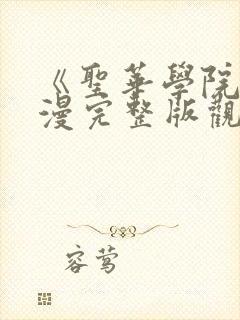 《聖華學院
漫完整版觀
容莺